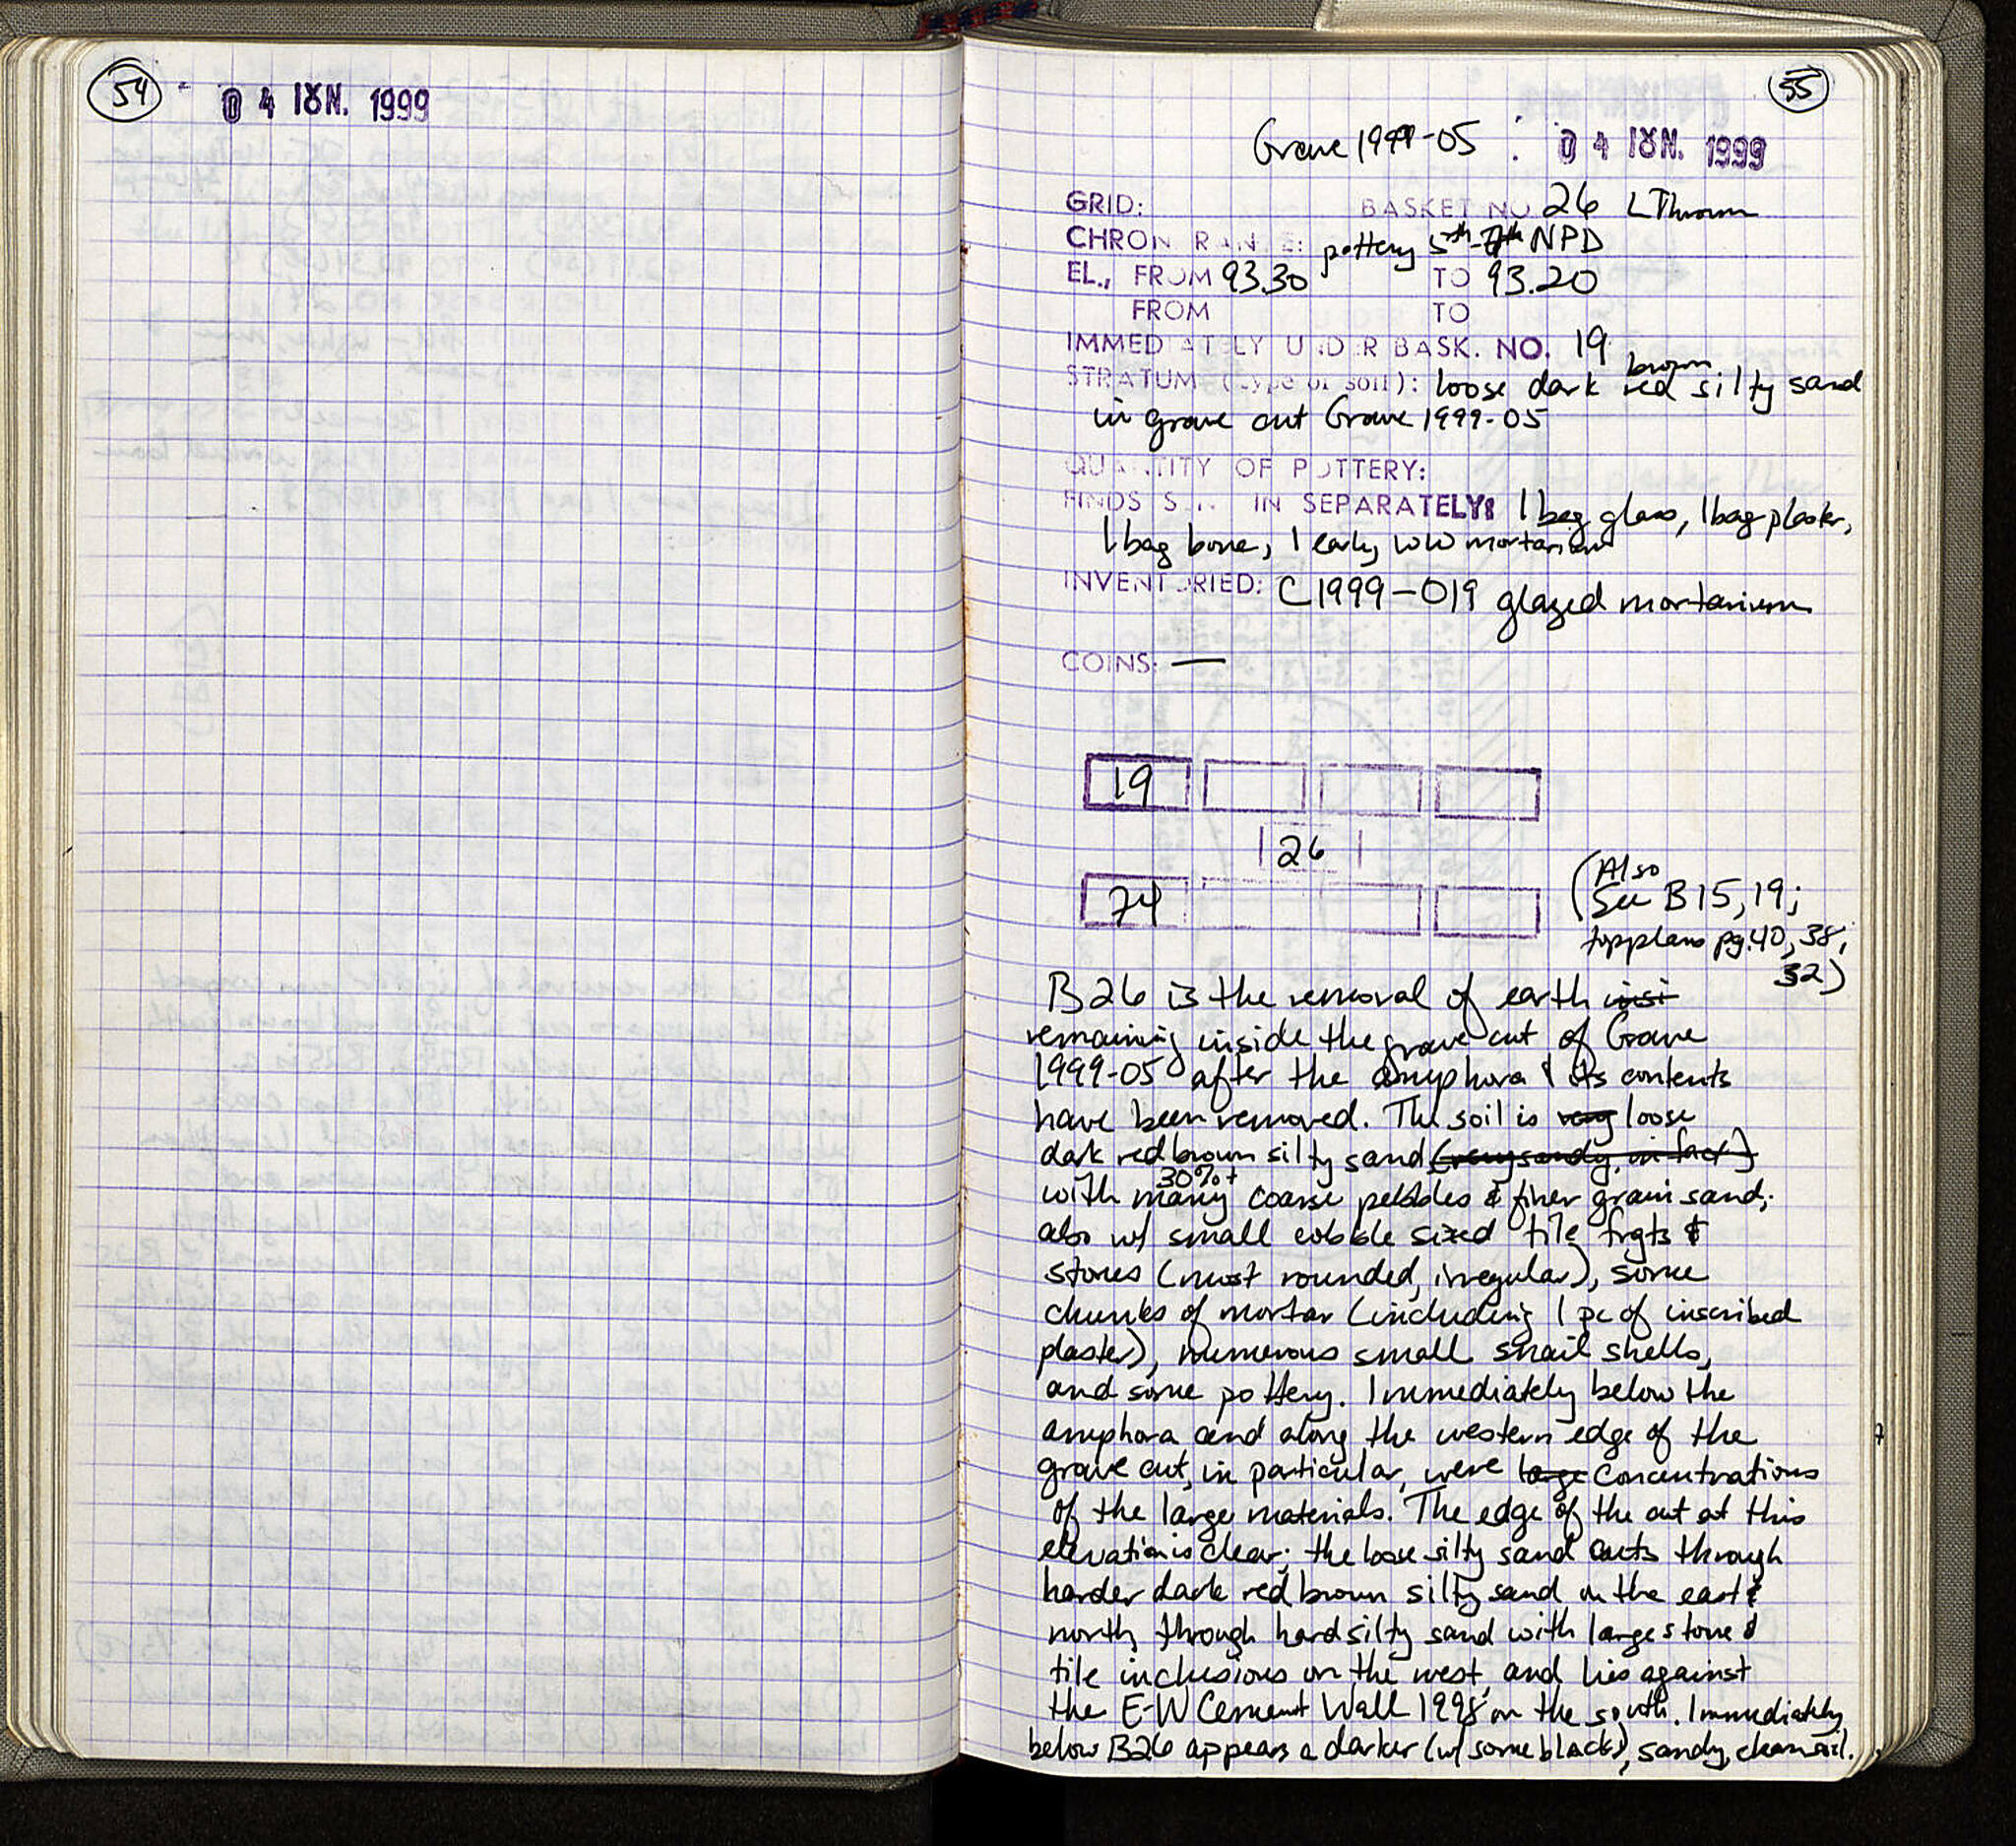 54
04 ΙΟΥΝ. 1999
55
Grave 1999-05 04 ΙΟΥΝ. 1999
GRID: BASKET NO 26 L Throm
CHRON. RANGE: pottery 5th - NPD
EL., FROM 93.30 TO 93.20
FROM TO
IMMEDIATELY UNDER BASK. NO. 19
STRATUM (type of soil): loose dark red brown silty sand
in grave cut Grave 1999-05
QUANTITY OF POTTERY:
FINDS S IN SEPARATELY: 1 bag glass, 1 bag plaster,
1 bag bone, 1 early WW mortarium
INVENTORIED: C1999-019 glazed mortarium
COINS: —
19
26
74
(Also
See B15, 19;
top plans pg. 40, 38,
32)
B26 is the removal of earth insi
remaining inside the grave cut of Grave
1999-05 after the amphora & its contents
have been removed. The soil is very loose
dark red brown silty sand (very sandy, in fact)
30%+
with many coarse pebbles & finer grain sand;
also w/ small cobble sized tile frgts &
stones (most rounded, irregular), some
chunks of mortar (including 1 pc of inscribed
plaster), numerous small snail shells,
and some pottery. Immediately below the
amphora and along the western edge of the
grave cut, in particular, were large concentrations
of the large materials. The edge of the cut at this
elevation is clear; the loose silty sand cuts through
harder dark red brown silty sand on the east &
north, through hard silty sand with large stone &
tile inclusions on the west, and lies against
the E-W Cement Wall 1998 on the south. Immediately
below B26 appears a darker (w/ some black), sandy, clean soil.